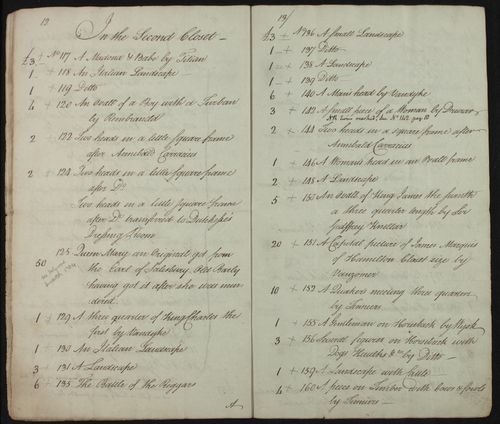 12
In the Second Closet
£3 + No 117 A Madona & Babe by Titian
1 + 118 An Italian Landscape
1 + 119 Ditto
4 + 120 An Ovall of a Boy with a Turban
by Rembrandt
2 122 Two heads in a little Square frame
after Annibale Carracius
2 + 124 Two heads in a little square frame
after Do
Two heads in a little Square frame
after Do transferred to Dutchess's
Dressing Room
50 125 Queen Mary an Original got from
the Earl of
having got it after she was mur
dered
1 + 129 A three quarter of King Charles the
first by Vandyke
1 + 130 An Italian Landscape
3 + 131 A Landscape
6 + 135 The Battle of the Beggars
A
13
£3 + No 136 A Small Landscape
1 + 137 Ditto
1 + 138 A Landscape
1 + 139 Ditto
6 + 140 A Mans head by Vandyke
3 + 142 A small piece of a Woman by
2 + 144 Two heads in a square frame after
Annibale Carracius
1 + 146 A Womans head in an Ovall frame
2 + 148 A Landscape
5 + 150 An Ovall of King James the
a three quarter length by Sir
Godfrey Kneller
20 + 151 A Capital picture of James Marquis
of Hamilton Closet size by
Vansomer
10 + 152 A Quakers meeting three quarters
by Teniers
1 + 155 A Gentleman on Horseback by Wyck
3 + 156 Several figures on Horseback with
Dogs Sheuths &ca by Ditto
1 + 159 A Landscape with
4 + 160 A piece on Timber with Cows & fowls
by Teniers